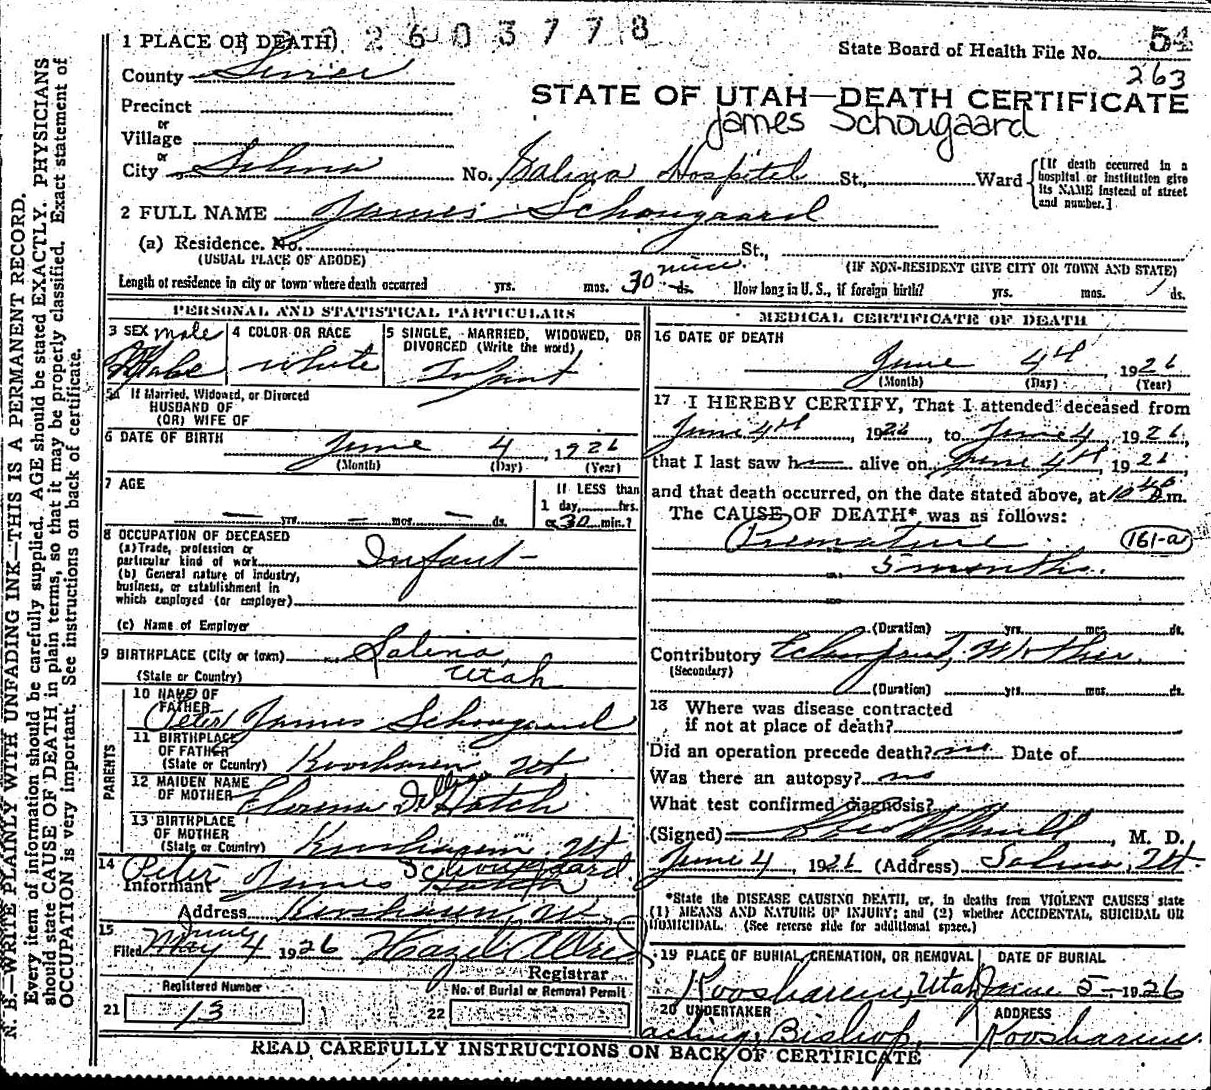 2603778
1 PLACE OF DEATH
State Board of Health File No. 54
263
County Sevier
STATE OF UTAH—DEATH CERTIFICATE
James Schougaard
Precinct
or
Village
or
City Salina No. Salina Hospital St., Ward
[If death occurred in a hospital or institution give its NAME instead of street and number.]
2 FULL NAME James Schougaard
(a) Residence. No. St.,
(USUAL PLACE OF ABODE) (IF NON-RESIDENT GIVE CITY OR TOWN AND STATE)
Length of residence in city or town where death occurred yrs. mos. 30 min. ds. How long in U. S., if foreign birth? yrs. mos. ds.
PERSONAL AND STATISTICAL PARTICULARS
3 SEX male
4 COLOR OR RACE white
5 SINGLE, MARRIED, WIDOWED, OR DIVORCED (Write the word)
Infant
5a If Married, Widowed, or Divorced
HUSBAND OF
(OR) WIFE OF
6 DATE OF BIRTH June 4, 1926
(Month) (Day) (Year)
7 AGE
— yrs. — mos. — ds.
If LESS than
1 day, hrs.
or 30 min.?
8 OCCUPATION OF DECEASED
(a) Trade, profession or
particular kind of work Infant
(b) General nature of industry,
business, or establishment in
which employed (or employer)
(c) Name of Employer
9 BIRTHPLACE (City or town) Salina,
(State or Country) Utah
PARENTS
10 NAME OF
FATHER (Peter) James Schougaard
11 BIRTHPLACE
OF FATHER
(State or Country) Koosharem, Ut
12 MAIDEN NAME
OF MOTHER Hatch
13 BIRTHPLACE
OF MOTHER
(State or Country) Koosharem, Ut
14 Peter Schougaard
Informant James
Address Koosharem, Ut
15 June
Filed May 4 1926 Hazel Allred
Registrar
Registered Number
21 13
No. of Burial or Removal Permit
22
MEDICAL CERTIFICATE OF DEATH
16 DATE OF DEATH
June 4th, 1926
(Month) (Day) (Year)
17 I HEREBY CERTIFY, That I attended deceased from
June 4th, 1926, to June 4, 1926,
that I last saw h— alive on June 4th, 1926
and that death occurred, on the date stated above, at 10 m.
The CAUSE OF DEATH* was as follows:
Premature 161-a
5 months.
(Duration) yrs. mos. ds.
Contributory Mother.
(Secondary)
(Duration) yrs. mos. ds.
18 Where was disease contracted
if not at place of death?
Did an operation precede death? no Date of
Was there an autopsy? no
What test confirmed diagnosis?
(Signed) M. D.
June 4, 1926 (Address) Salina, Ut
*State the DISEASE CAUSING DEATH, or, in deaths from VIOLENT CAUSES state
(1) MEANS AND NATURE OF INJURY; and (2) whether ACCIDENTAL, SUICIDAL OR
HOMICIDAL. (See reverse side for additional space.)
19 PLACE OF BURIAL, CREMATION, OR REMOVAL DATE OF BURIAL
Koosharem, Utah June 5—1926
20 UNDERTAKER ADDRESS
acting Bishop, Koosharem
READ CAREFULLY INSTRUCTIONS ON BACK OF CERTIFICATE
N. B.—WRITE PLAINLY WITH UNFADING INK—THIS IS A PERMANENT RECORD.
Every item of information should be carefully supplied. AGE should be stated EXACTLY. PHYSICIANS
should state CAUSE OF DEATH in plain terms, so that it may be properly classified. Exact statement of
OCCUPATION is very important. See instructions on back of certificate.